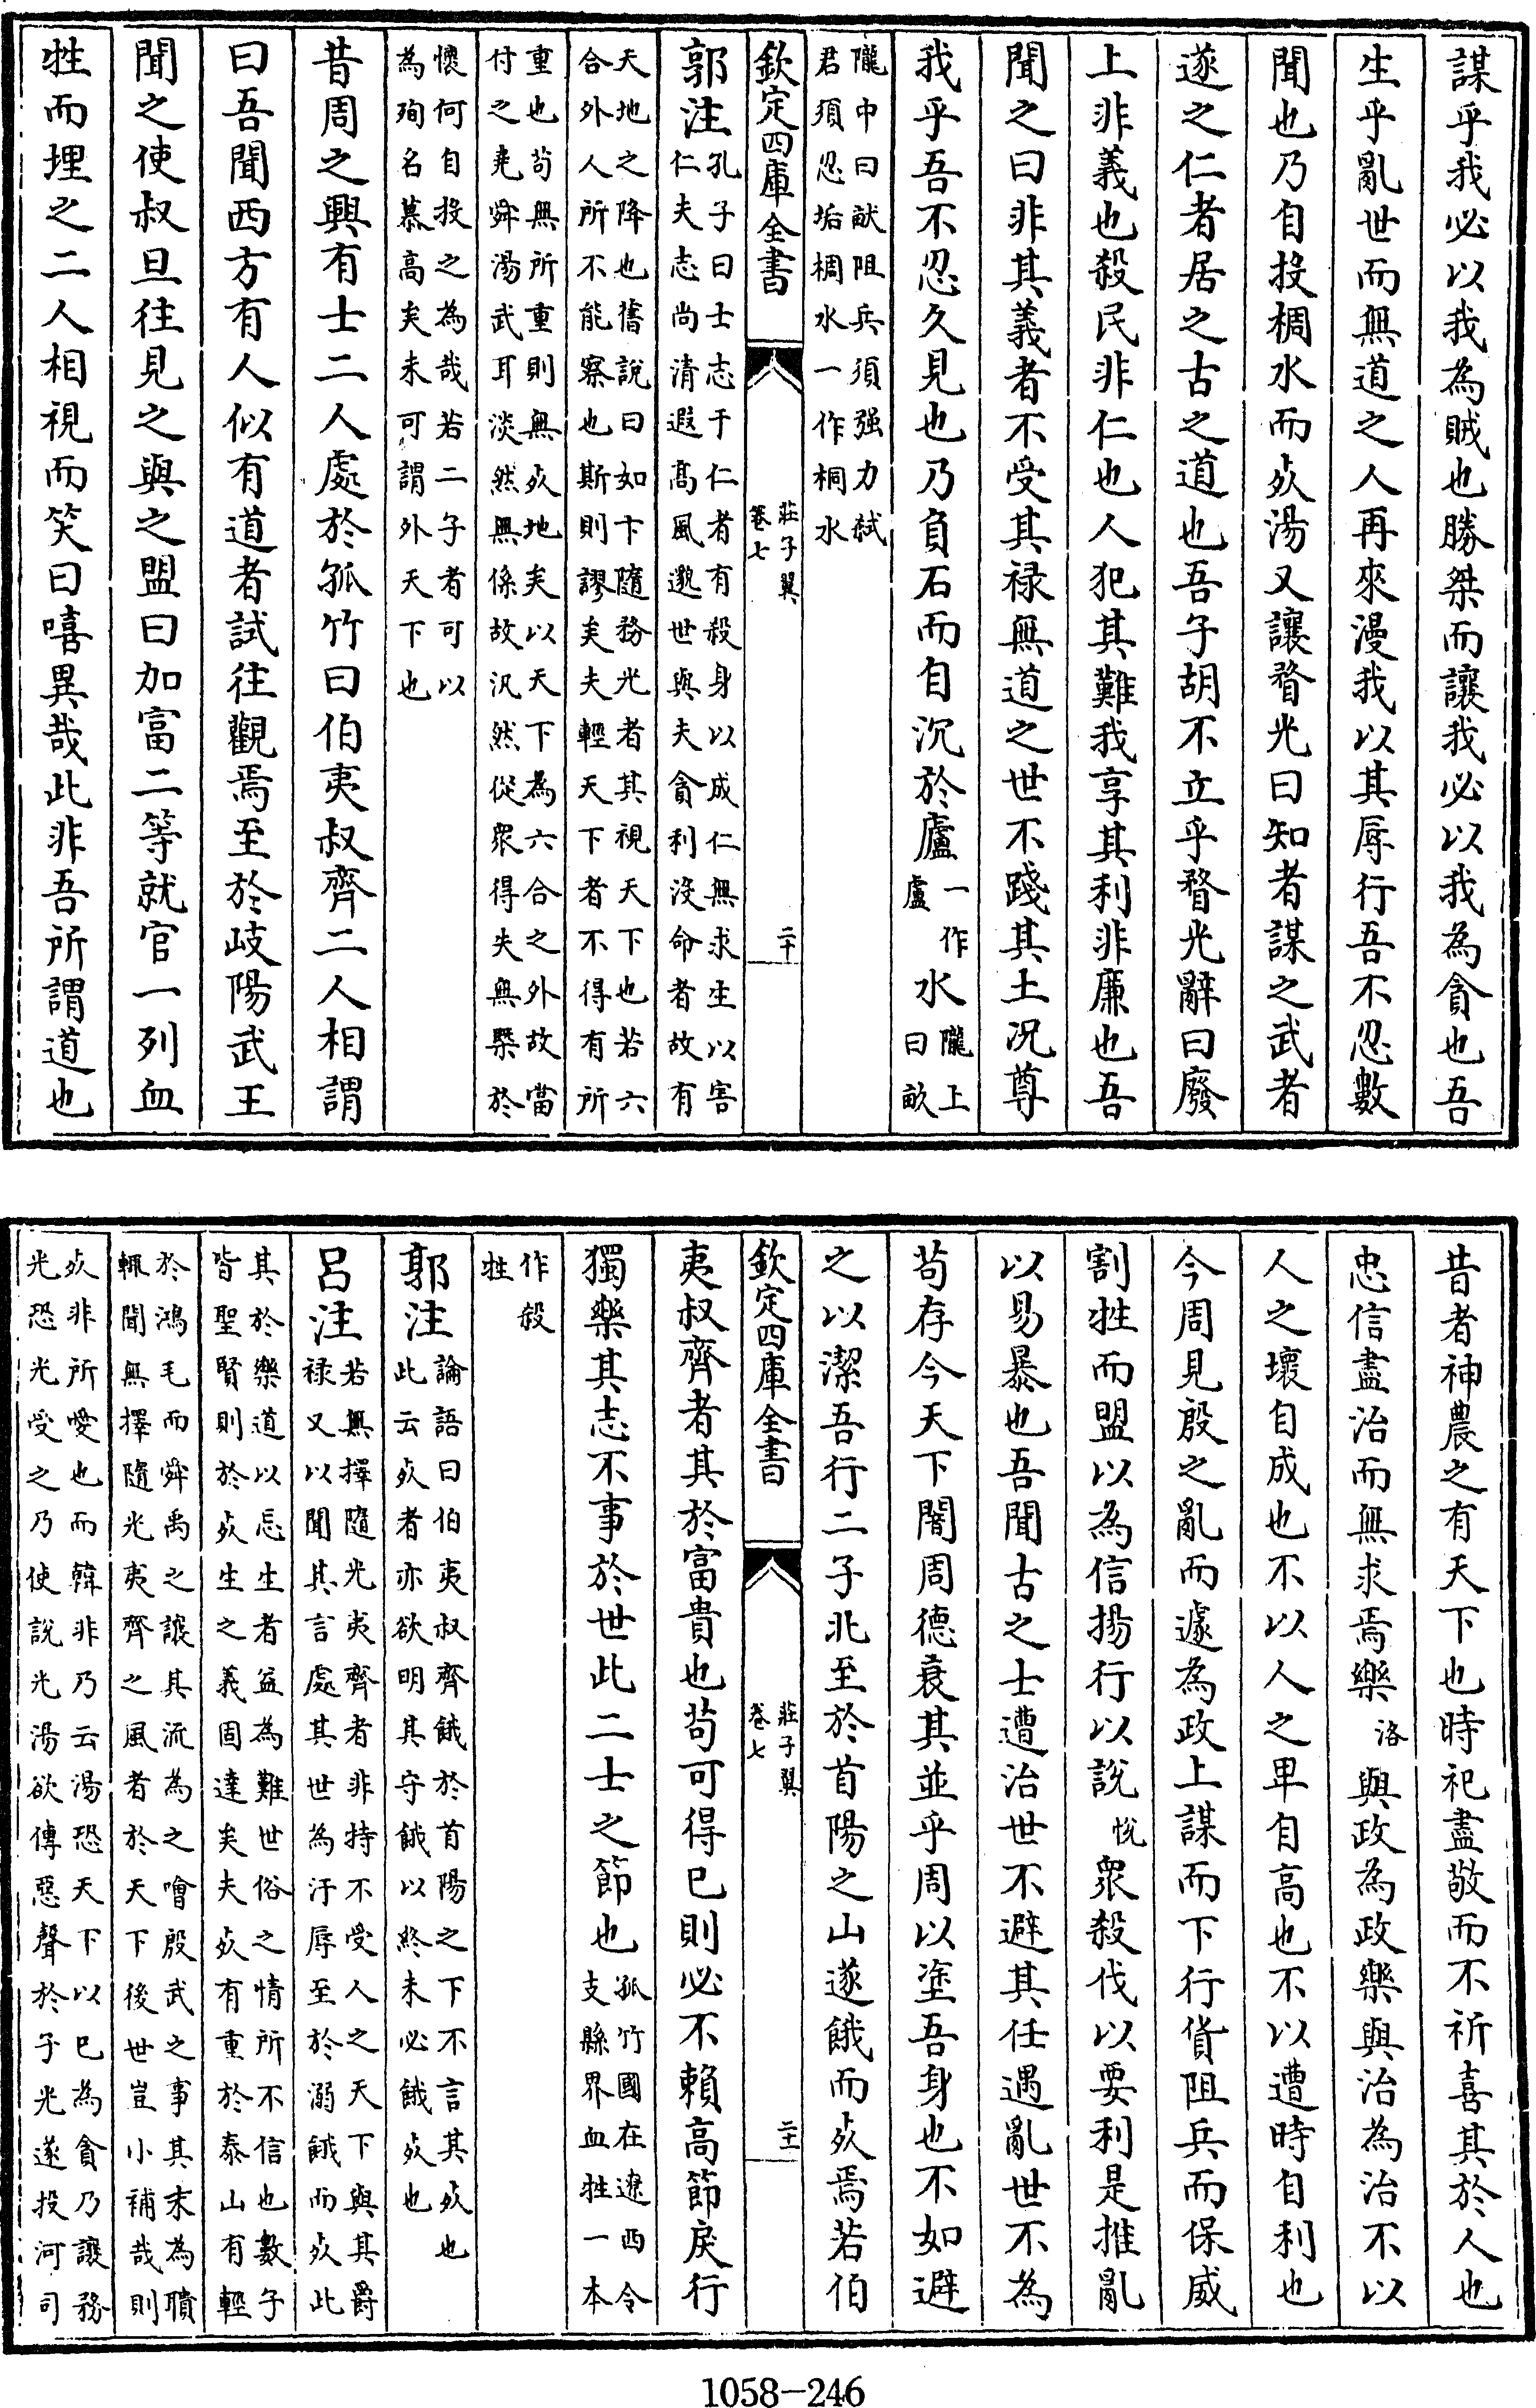 謀乎我必以我為賊也勝桀而讓我必以我為貪也吾
生乎亂世而無道之人再來漫我以其辱行吾不忍數
聞也乃自投椆水而死湯又讓瞀光曰知者謀之武者
遂之仁者居之古之道也吾子胡不立乎瞀光辭曰廢
上非義也殺民非仁也人犯其難我享其利非廉也吾
聞之曰非其義者不受其祿無道之世不踐其土况尊
我乎吾不忍久見也乃負石而自沉於廬一作盧水隴上曰畝
隴中曰畎阻兵須强力弑
君須忍垢椆水一作桐水
欽定四庫全書 莊子翼卷七 二十
郭注孔子曰士志于仁者有殺身以成仁無求生以害
仁夫志尚清遐高風邈世與夫貪利沒命者故有
天地之降也舊說曰如卞隨務光者其視天下也若六
合外人所不能察也斯則謬矣夫輕天下者不得有所
重也茍無所重則無死地矣以天下為六合之外故當
付之堯舜湯武耳淡然無係故汎然從眾得失無槩於
懷何自投之為哉若二子者可以
為殉名慕高矣未可謂外天下也
昔周之興有士二人處於孤竹曰伯夷叔齊二人相謂
曰吾聞西方有人似有道者試往觀焉至於岐陽武王
聞之使叔旦往見之與之盟曰加富二等就官一列血
牲而埋之二人相視而笑曰嘻異哉此非吾所謂道也
昔者神農之有天下也時祀盡敬而不祈喜其於人也
忠信盡治而無求焉樂洛與政為政樂與治為治不以
人之壞自成也不以人之卑自高也不以遭時自利也
今周見殷之亂而遽為政上謀而下行貨阻兵而保威
割牲而盟以為信揚行以說悅眾殺伐以要利是推亂
以易暴也吾聞古之士遭治世不避其任遇亂世不為
茍存今天下闇周德衰其並乎周以塗吾身也不如避
之以潔吾行二子北至於首陽之山遂餓而死焉若伯
欽定四庫全書 莊子翼卷七 二十一
夷叔齊者其於富貴也茍可得已則必不賴高節戾行
獨樂其志不事於世此二士之節也孤竹國在遼西令
支縣界血牲一本
作殺
牲
郭注論語曰伯夷叔齊餓於首陽之下不言其死也
此云死者亦欲明其守餓以終未必餓死也
呂注若無擇隨光夷齊者非特不受人之天下與其爵
祿又以聞其言處其世為汙辱至於溺餓而死此
其於樂道以忘生者益為難世俗之情所不信也數子
皆聖賢則於死生之義固達矣夫死有重於泰山有輕
於鴻毛而舜禹之讓其流為之噲殷武之事其末為聵
輒聞無擇隨光夷齊之風者於天下後世豈小補哉則
死非所愛也而韓非乃云湯恐天下以已為貪乃讓務
光恐光受之乃使說光湯欲傳惡聲於子光遂投河司
1058-246